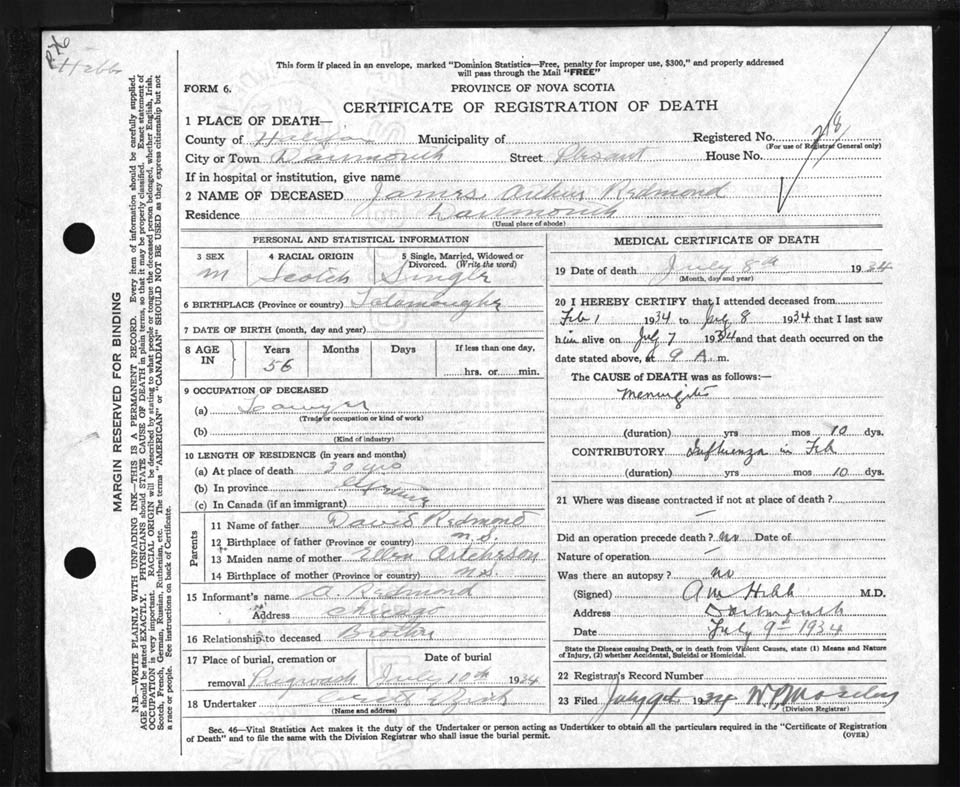 Hebb
This form if placed in an envelope, marked "Dominion Statistics—Free, penalty for improper use, $300," and properly addressed
will pass through the Mail "FREE"
FORM 6.
PROVINCE OF NOVA SCOTIA
CERTIFICATE OF REGISTRATION OF DEATH
1 PLACE OF DEATH—
County of Halifax Municipality of Registered No. 218
(For use of Registrar General only)
City or Town Dartmouth Street Plesant House No.
If in hospital or institution, give name
2 NAME OF DECEASED James Arthur Redmond
Residence Dartmouth
(Usual place of abode)
PERSONAL AND STATISTICAL INFORMATION
3 SEX 4 RACIAL ORIGIN 5 Single, Married, Widowed or
Divorced. (Write the word)
M Scotch Single
6 BIRTHPLACE (Province or country)
7 DATE OF BIRTH (month, day and year)
8 AGE IN Years Months Days If less than one day,
56 hrs. or min.
9 OCCUPATION OF DECEASED
(a) Lawyer
(Trade or occupation or kind of work)
(b)
(Kind of industry)
10 LENGTH OF RESIDENCE (in years and months)
(a) At place of death 20 yrs
(b) In province
(c) In Canada (if an immigrant)
Parents
11 Name of father David Redmond
12 Birthplace of father (Province or country) N.S.
13 Maiden name of mother Ellen
14 Birthplace of mother (Province or country) N.S.
15 Informant's name A Redmond
Address Chicago
16 Relationship to deceased Brother
17 Place of burial, cremation or Date of burial
removal Pugwash July 10th 1934
18 Undertaker
(Name and address)
MEDICAL CERTIFICATE OF DEATH
19 Date of death July 8th 1934
(Month, day and year)
20 I HEREBY CERTIFY that I attended deceased from
Feb 1 1934 to July 8 1934 that I last saw
him alive on July 7 1934 and that death occurred on the
date stated above, at 9 A. m.
The CAUSE of DEATH was as follows:—
Meningitis
(duration) yrs mos 10 dys.
CONTRIBUTORY Influenza in Feb
(duration) yrs mos 10 dys.
21 Where was disease contracted if not at place of death?
—
Did an operation precede death? no Date of
Nature of operation —
Was there an autopsy? no
(Signed) M.D.
Address Dartmouth
Date July 9th 1934
State the Disease causing Death, or in death from Violent Causes, state (1) Means and Nature
of Injury, (2) whether Accidental, Suicidal or Homicidal.
22 Registrar's Record Number
23 Filed July 9th 1934
(Division Registrar)
Sec. 46—Vital Statistics Act makes it the duty of the Undertaker or person acting as Undertaker to obtain all the particulars required in the "Certificate of Registration
of Death" and to file the same with the Division Registrar who shall issue the burial permit.
(OVER)
MARGIN RESERVED FOR BINDING
N.B.—WRITE PLAINLY WITH UNFADING INK—THIS IS A PERMANENT RECORD. Every item of information should be carefully supplied.
AGE should be stated EXACTLY. PHYSICIANS should STATE CAUSE OF DEATH in plain terms, so that it may be properly classified. Exact statement of
OCCUPATION is very important. RACIAL ORIGIN will be described by stating to what people or tongue the deceased person belonged, whether English, Irish,
Scotch, French, German, Russian, Ruthenian, etc. The terms "AMERICAN" or "CANADIAN" SHOULD NOT BE USED as they express citizenship but not
a race or people. See instructions on back of Certificate.